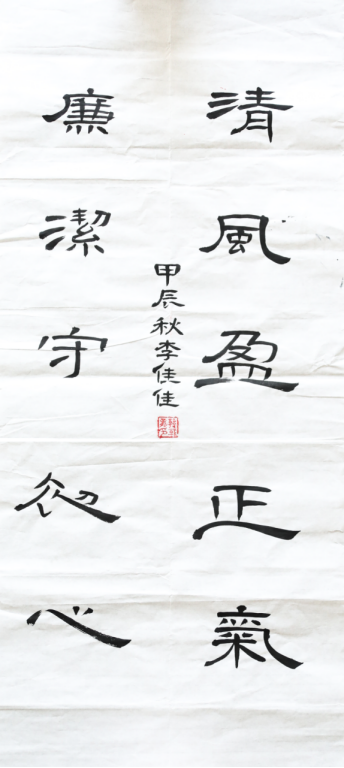 清風盈正氣
廉潔守初心
甲辰秋李佳佳